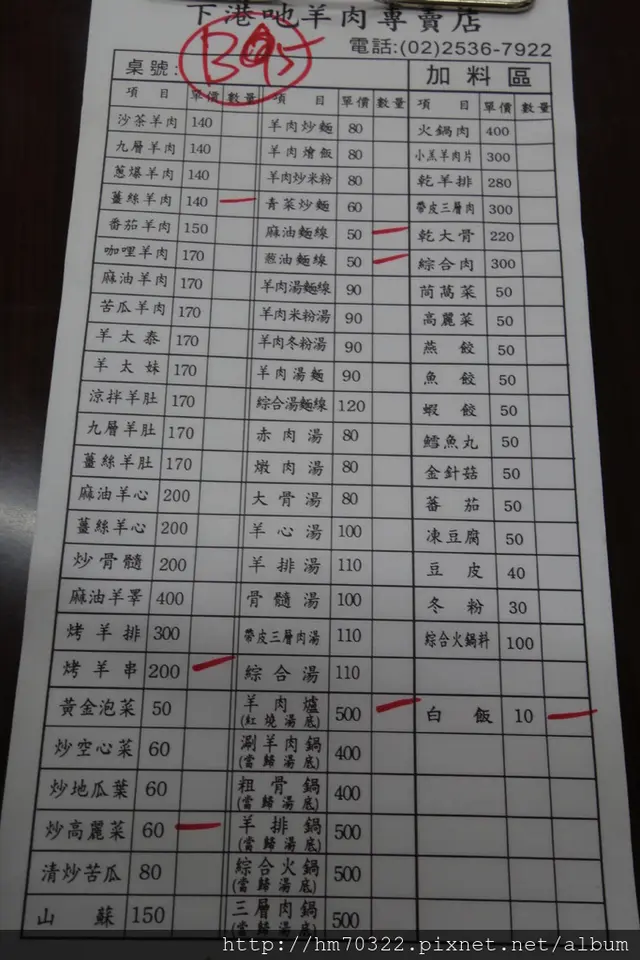 下港吔羊肉專賣店
電話:(02)2536-7922
桌號: 加料區
項目 單價 數量 項目 單價 數量 項目 單價 數量
沙茶羊肉 140 羊肉炒麵 80 火鍋肉 400
九層羊肉 140 羊肉燴飯 80 小羔羊肉片 300
蔥爆羊肉 140 羊肉炒米粉 80 乾羊排 280
薑絲羊肉 140 青菜炒麵 60 帶皮三層肉 300
番茄羊肉 150 麻油麵線 50 乾大骨 220
咖哩羊肉 170 葱油麵線 50 綜合肉 300
麻油羊肉 170 羊肉湯麵線 90 茼萵菜 50
苦瓜羊肉 170 羊肉米粉湯 90 高麗菜 50
羊太泰 170 羊肉冬粉湯 90 燕餃 50
羊太妹 170 羊肉湯麵 90 魚餃 50
涼拌羊肚 170 綜合湯麵線 120 蝦餃 50
九層羊肚 170 赤肉湯 80 鱈魚丸 50
薑絲羊肚 170 燉肉湯 80 金針菇 50
麻油羊心 200 大骨湯 80 蕃茄 50
薑絲羊心 200 羊心湯 100 凍豆腐 50
炒骨髓 200 羊排湯 110 豆皮 40
麻油羊睪 400 骨髓湯 100 冬粉 30
烤羊排 300 帶皮三層肉湯 110 綜合火鍋料 100
烤羊串 200 綜合湯 110
黃金泡菜 50 羊肉爐(紅燒湯底) 500 白飯 10
炒空心菜 60 涮羊肉鍋(當歸湯底) 400
炒地瓜葉 60 粗骨鍋(當歸湯底) 400
炒高麗菜 60 羊排鍋(當歸湯底) 500
清炒苦瓜 80 綜合火鍋(當歸湯底) 500
山蘇 150 三層肉鍋(當歸湯底) 500
http://hm70322.pixnet.net/album